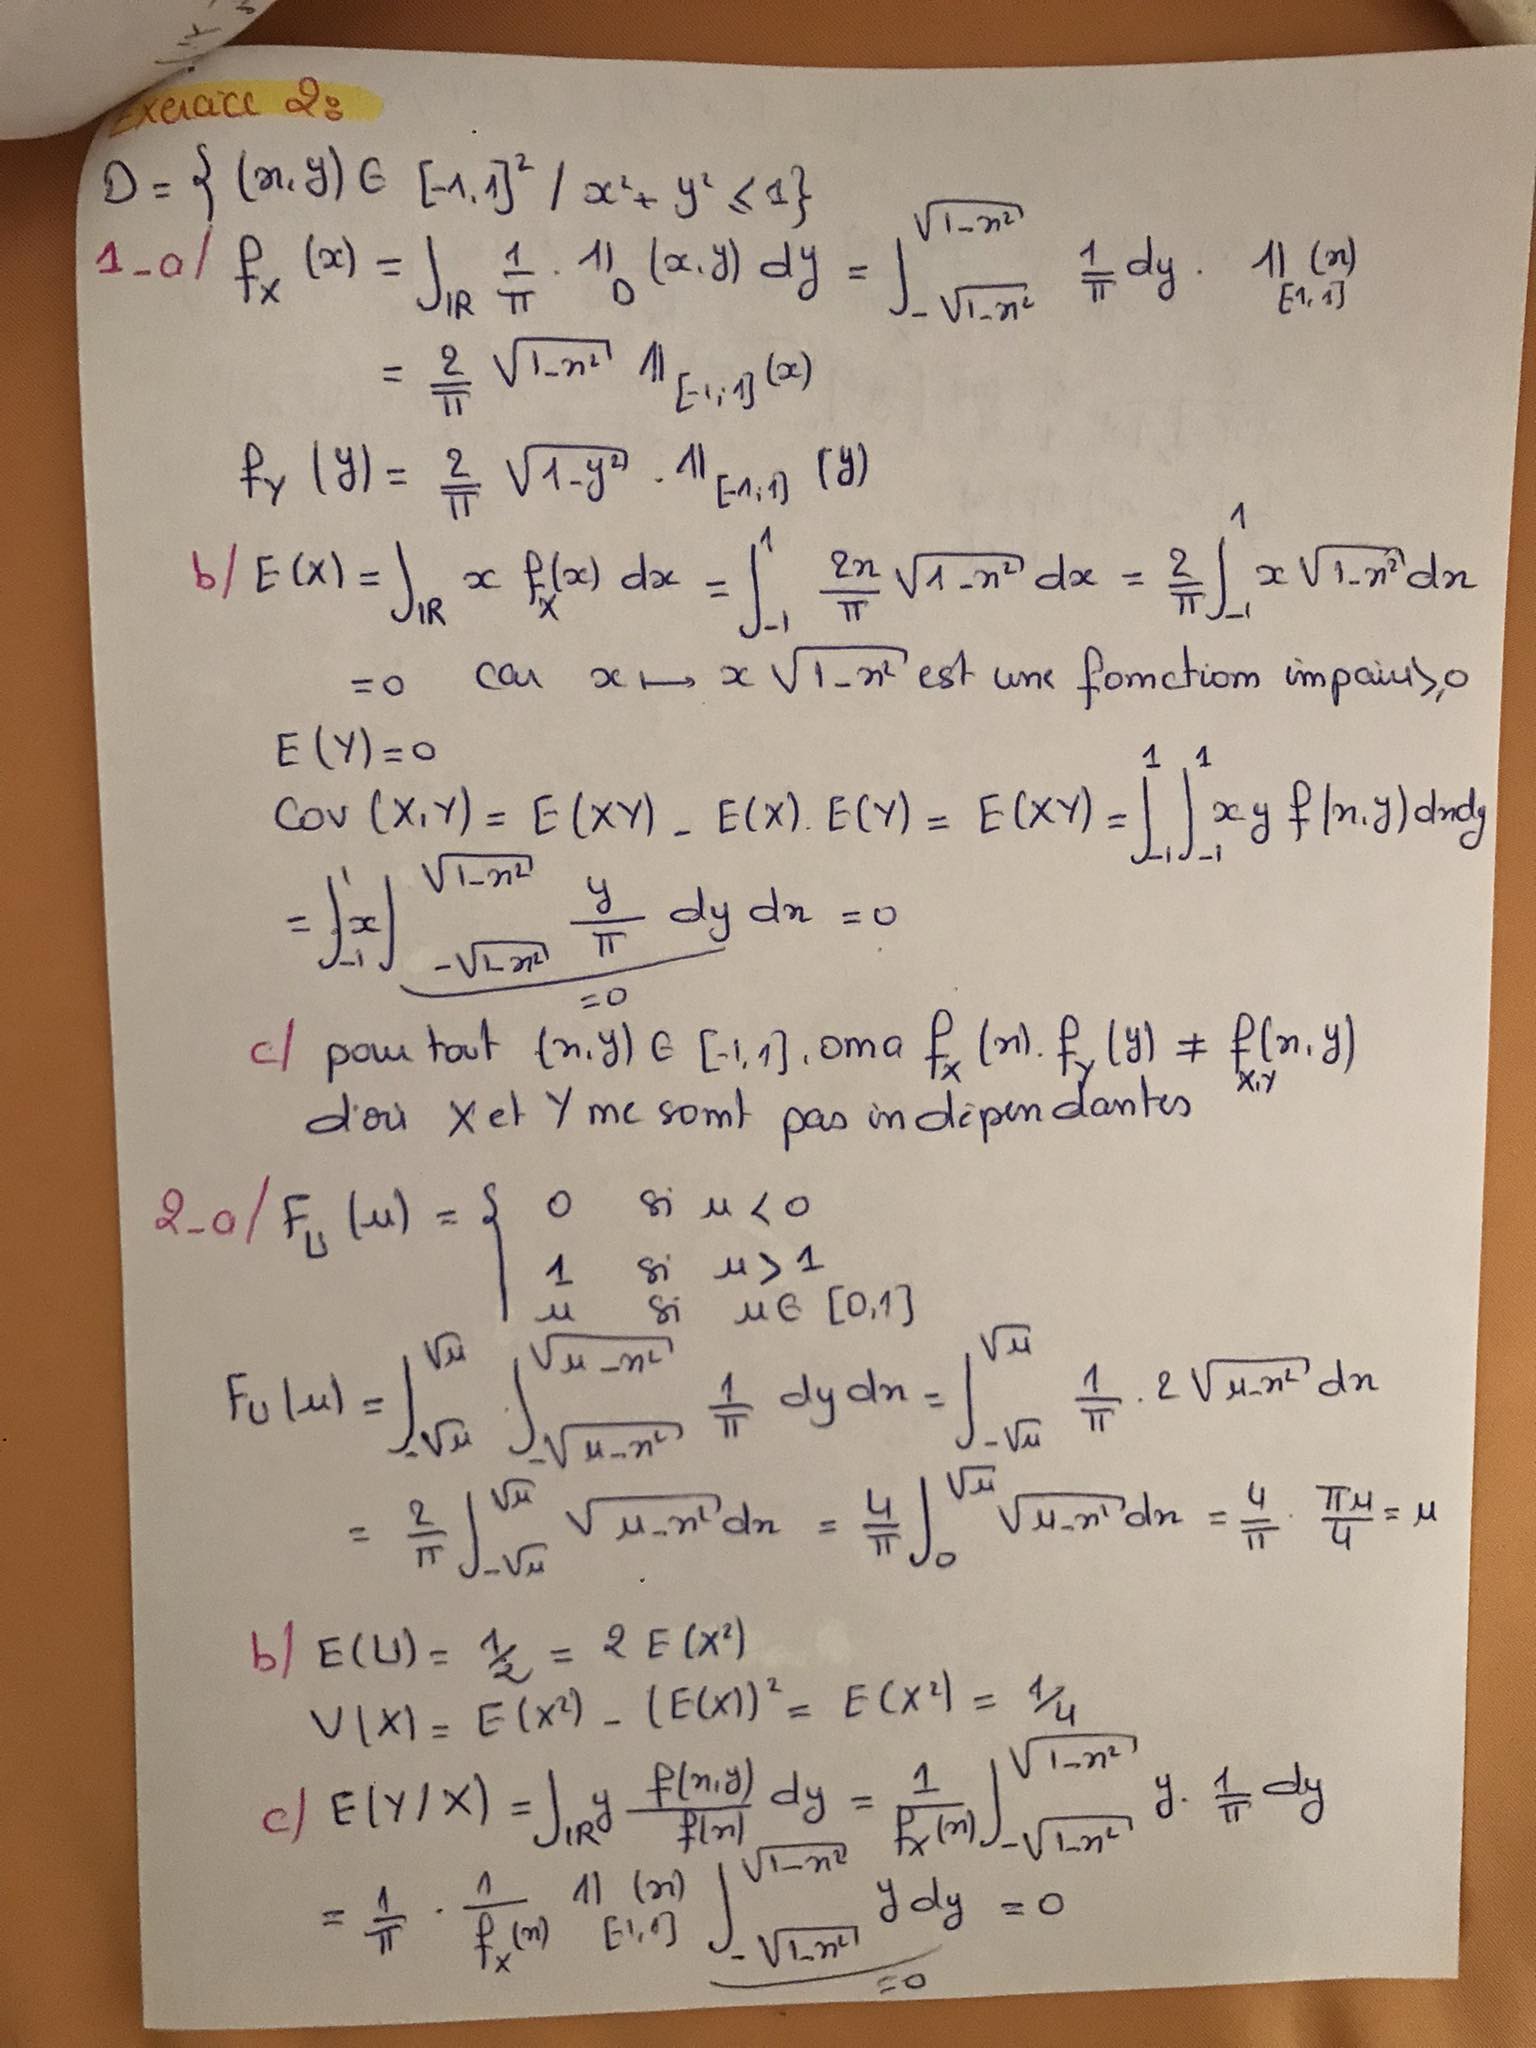 Exercice 2:
D = { (x,y) ∈ [-1,1]² / x² + y² ≤ 1}
1-a/ f_X (x) = ∫_IR 1/π · 1l_D (x,y) dy = ∫_{-√(1-x²)}^{√(1-x²)} 1/π dy · 1l_[1,1] (x)
= 2/π √(1-x²) 1l_[-1,1] (x)
f_Y (y) = 2/π √(1-y²) · 1l_[-1,1] (y)
b/ E(X) = ∫_IR x f_X(x) dx = ∫_{-1}^{1} 2x/π √(1-x²) dx = 2/π ∫_{-1}^{1} x √(1-x²) dx
=0 car x ↦ x √(1-x²) est une fonction impair
E(Y)=0
Cov (X,Y) = E(XY) - E(X). E(Y) = E(XY) = ∫_{-1}^{1} ∫_{-1}^{1} x y f(x,y) dxdy
= ∫_{-1}^{1} x ∫_{-√(1-x²)}^{√(1-x²)} y/π dy dx = 0
=0
c/ pour tout (x,y) ∈ [-1,1], on a f_X (x). f_Y (y) ≠ f_{X,Y}(x,y)
d'où X et Y ne sont pas indépendantes
2-a/ F_U (u) = { 0 si u < 0
1 si u > 1
u si u ∈ [0,1]
F_U(u) = ∫_{-√u}^{√u} ∫_{-√(u-x²)}^{√(u-x²)} 1/π dy dx = ∫_{-√u}^{√u} 1/π . 2 √(u-x²) dx
= 2/π ∫_{-√u}^{√u} √(u-x²) dx = 4/π ∫_0^{√u} √(u-x²) dx = 4/π · πu/4 = u
b/ E(U) = 1/2 = 2 E(X²)
V(X) = E(X²) - (E(X))² = E(X²) = 1/4
c/ E(Y/X) = ∫_IR y f(x,y)/f(x) dy = 1/f_X(x) ∫_{-√(1-x²)}^{√(1-x²)} y. 1/π dy
= 1/π · 1/f_X(x) 1l_[-1,1] (x) ∫_{-√(1-x²)}^{√(1-x²)} y dy = 0
=0